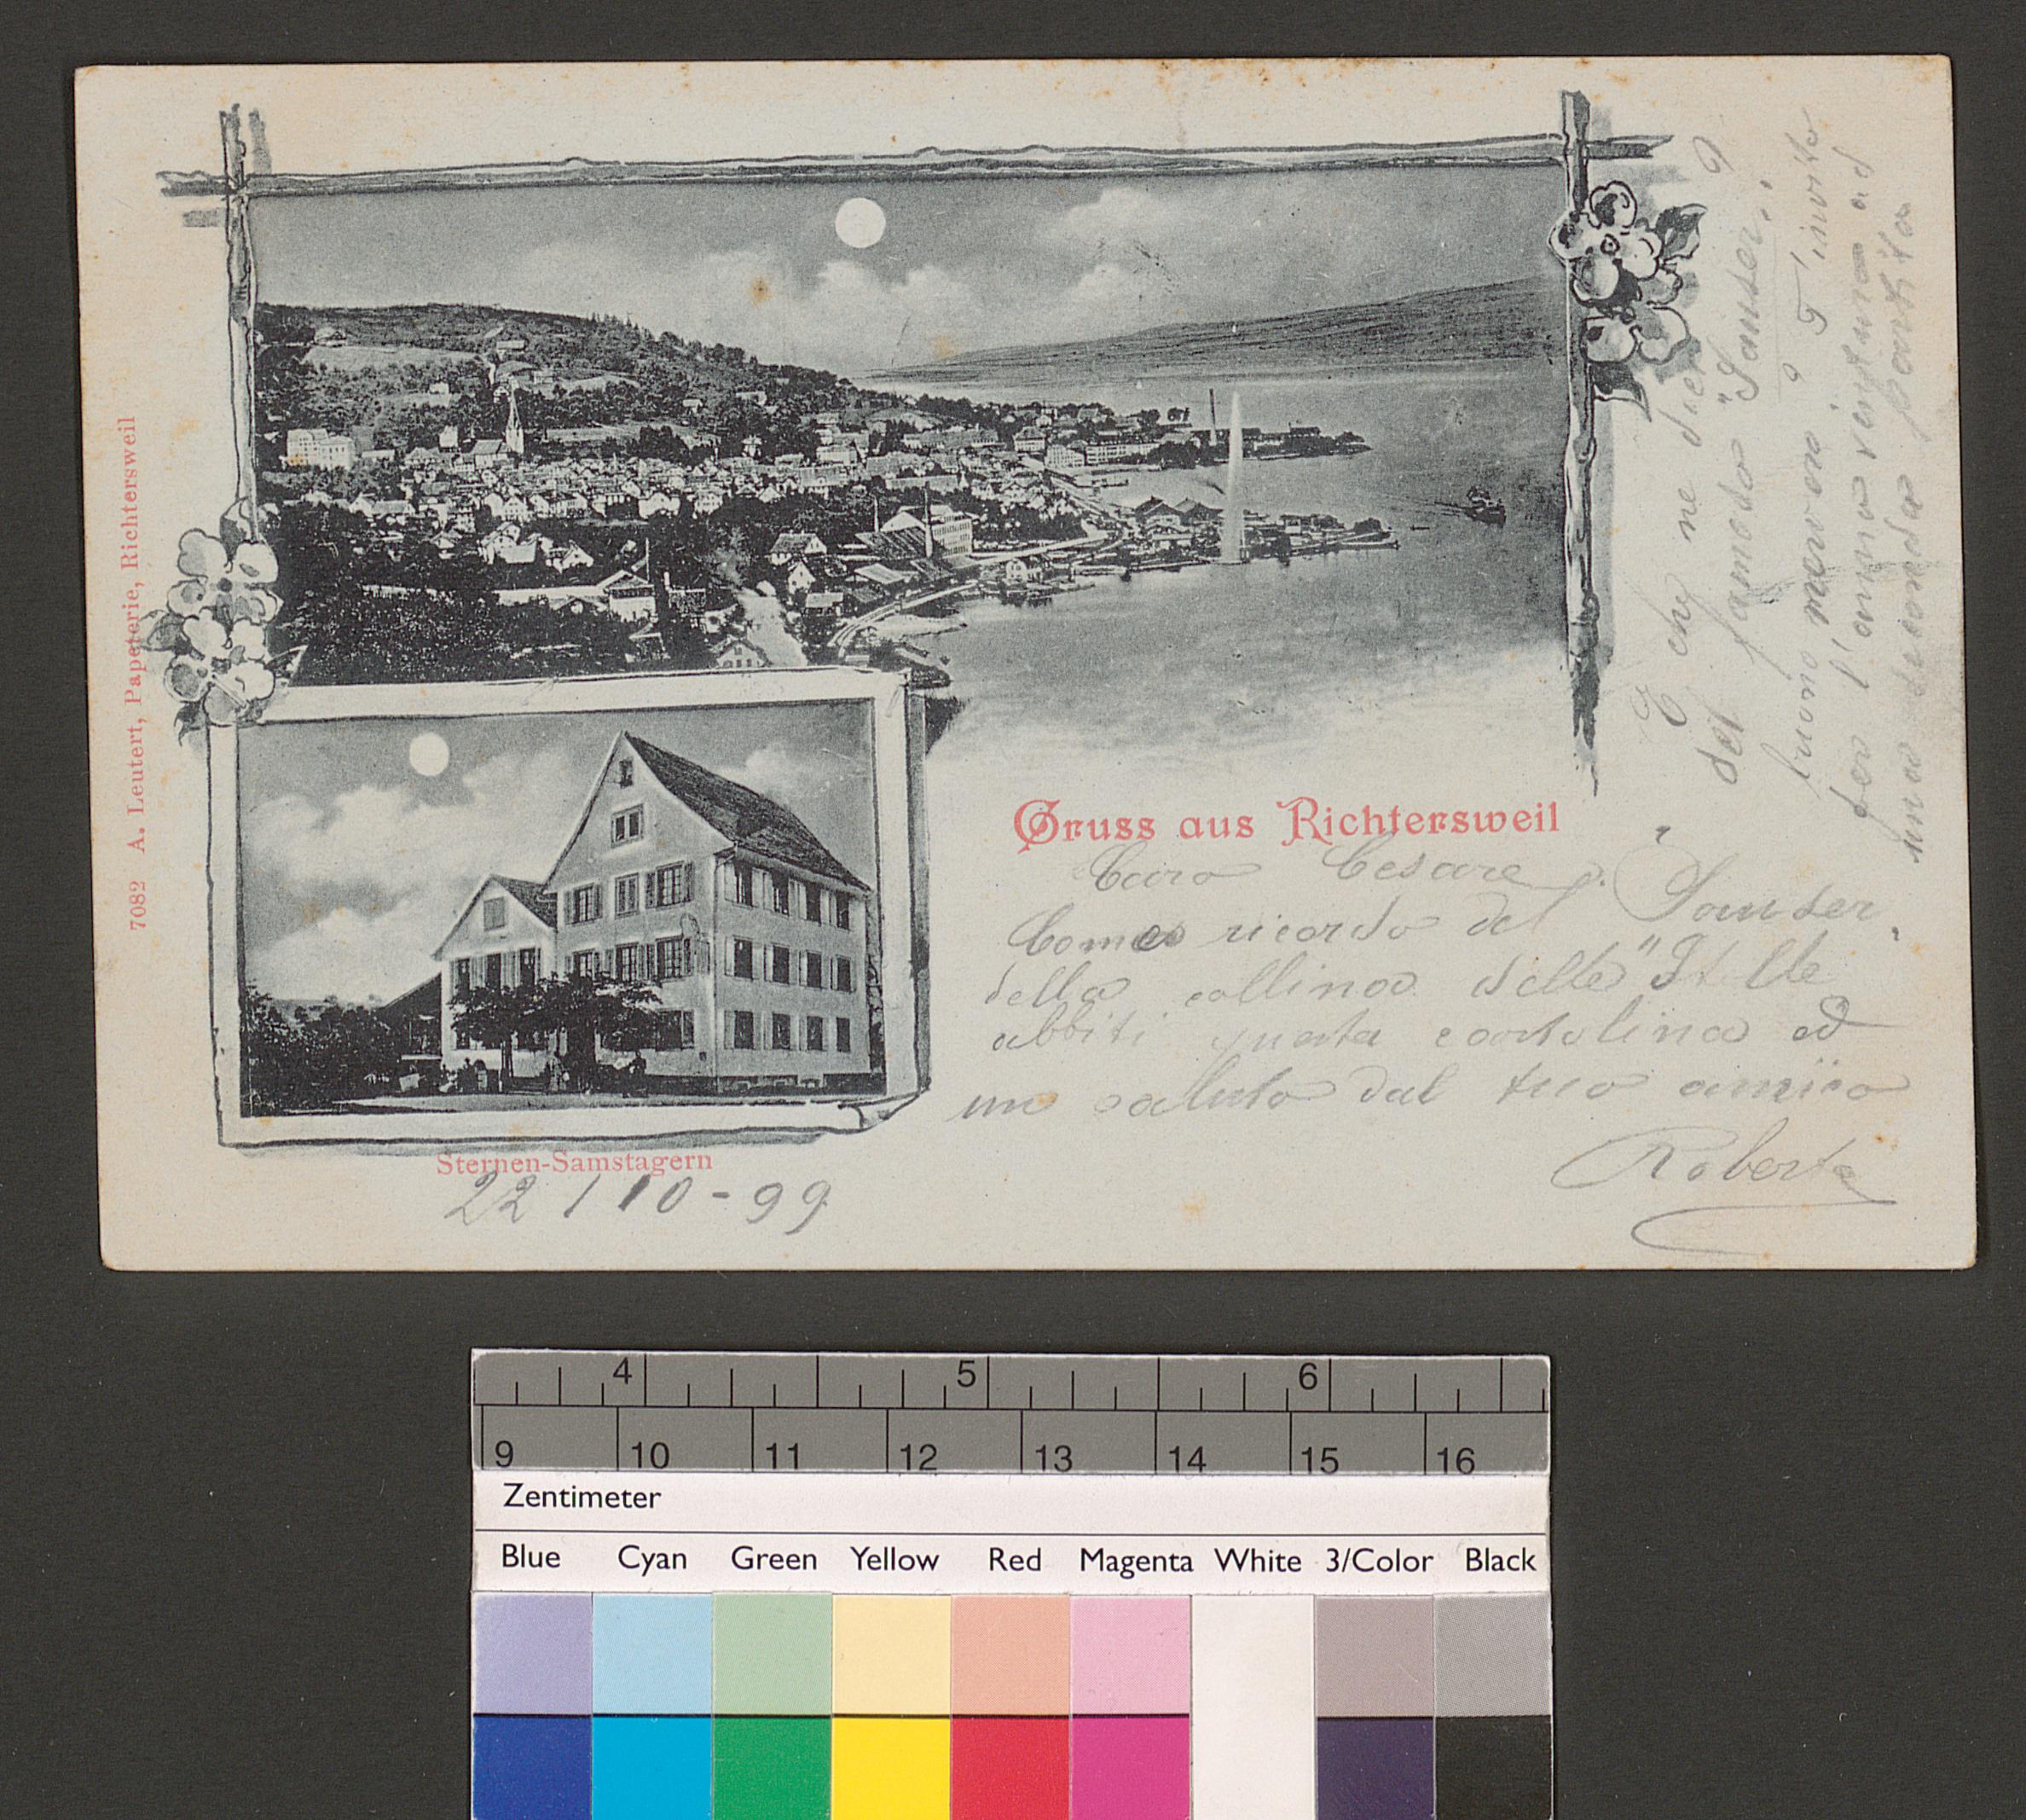 7082 A. Leutert, Papeterie, Richtersweil
Gruss aus Richtersweil
Caro Cesare
Come ricordo del "Sauser"
della collina delle "Stelle"
abbiti questa cartolina ed
un saluto dal tuo amico
Roberto
E che ne dici
del famoso "Sauser"?
buono T'invito
per l'anno venturo ad
una seconda partita
Sternen-Samstagern
22/10-99
4 5 6
9 10 11 12 13 14 15 16
Zentimeter
Blue Cyan Green Yellow Red Magenta White 3/Color Black